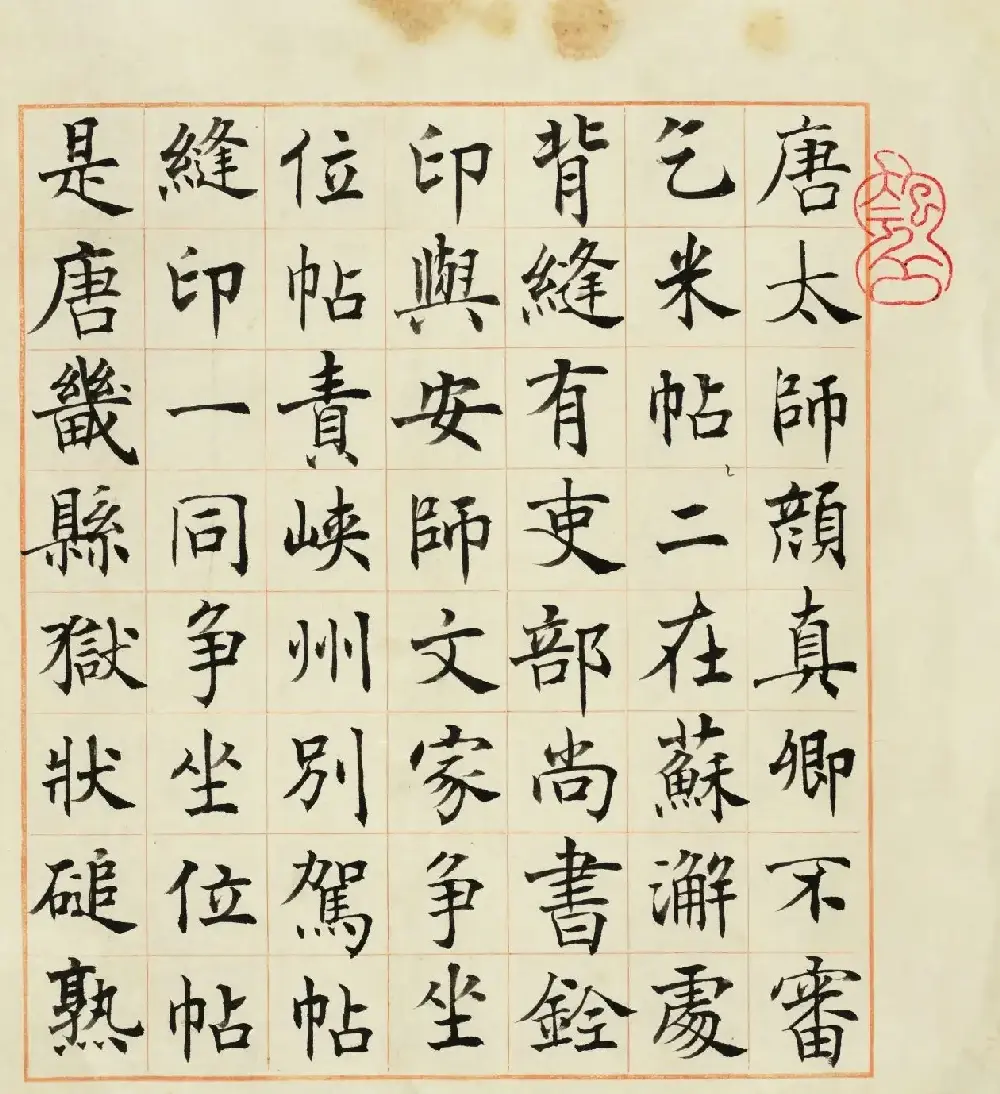 唐太師顔真卿不審
乞米帖二在蘇澥處
背縫有吏部尚書銓
印與安師文家争坐
位帖責峽州别駕帖
縫印一同争坐位帖
是唐畿縣獄狀磓熟